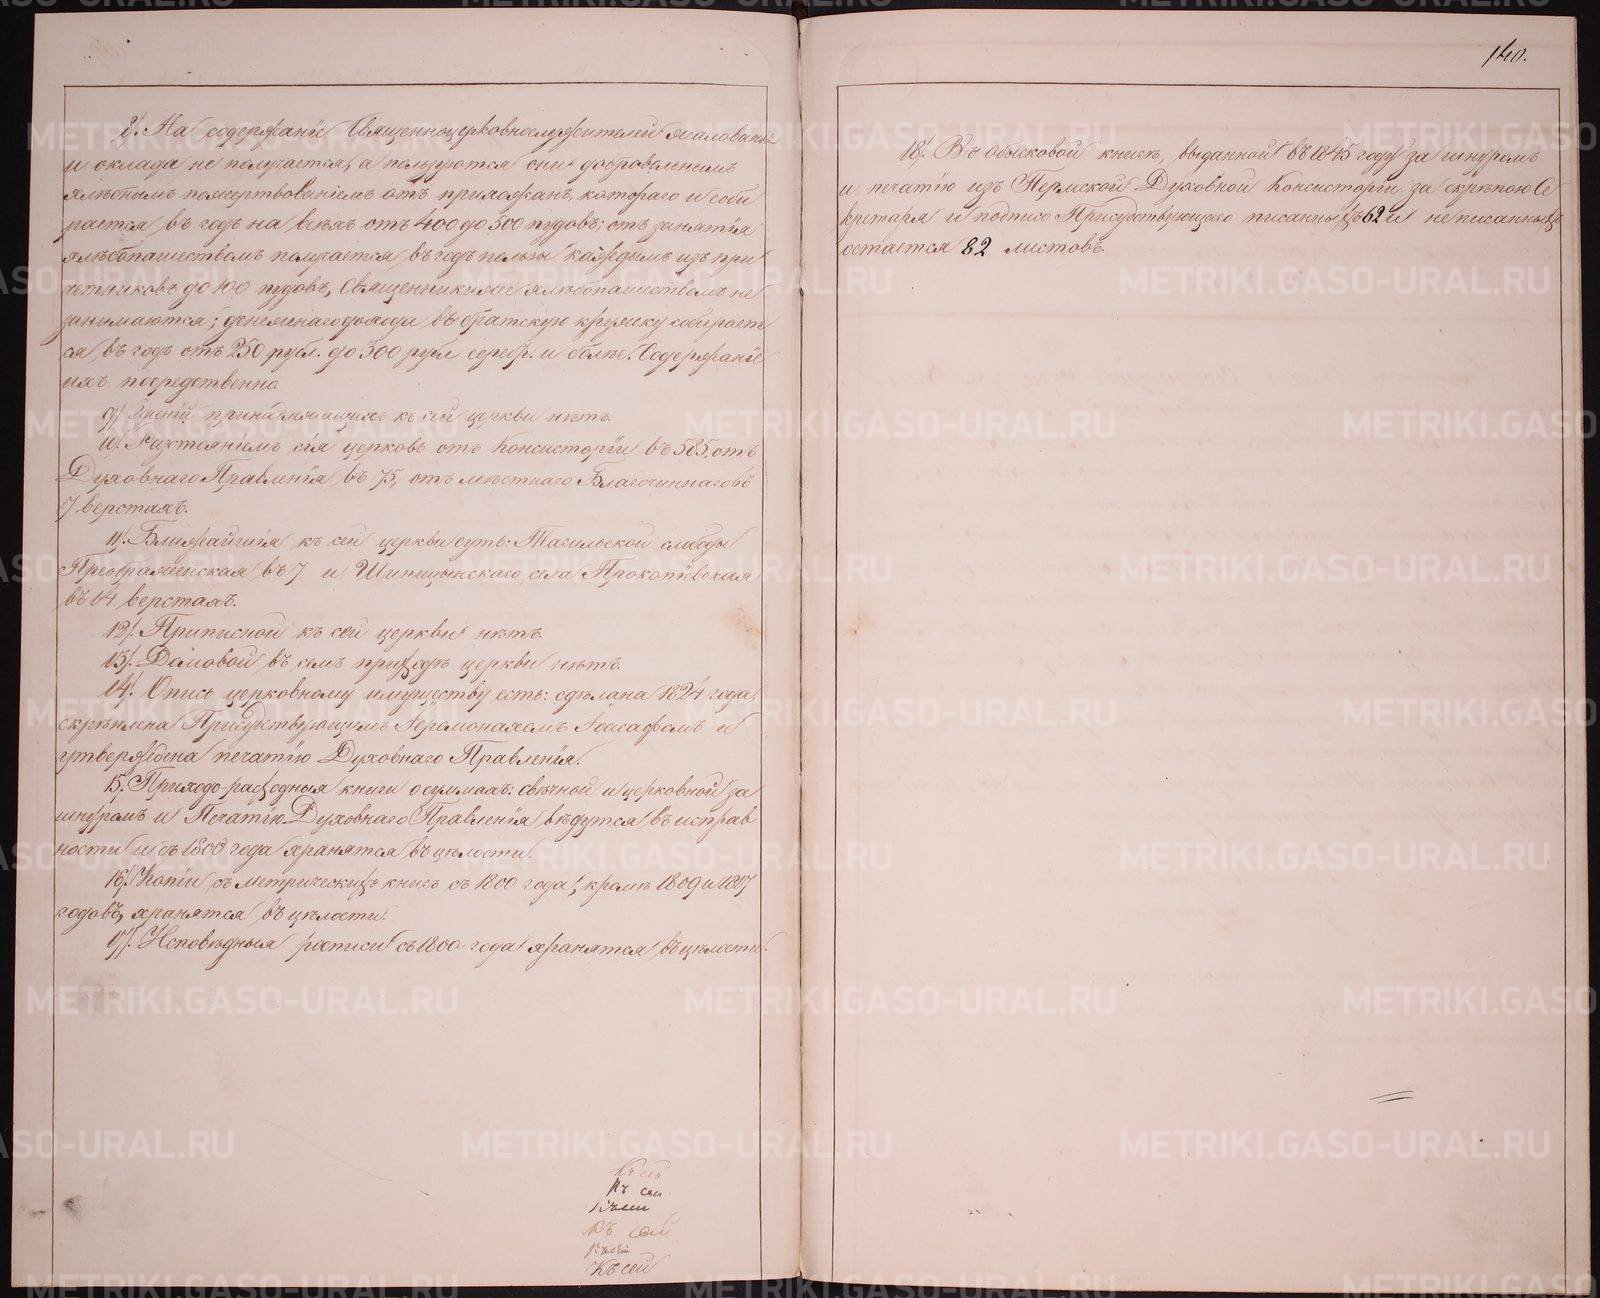 8. На содержаніе Священноцерковнослужителей жалованья
и оклада не получается, а пользуются они добровольнымъ
хлѣбнымъ пожертвованіемъ отъ прихожанъ, котораго и соби
рается въ годъ на всѣхъ отъ 400 до 500 пудовъ; отъ занятія
хлѣбопашествомъ получается въ годъ пользы каждымъ изъ при
четниковъ до 100 пудовъ, Священники же хлѣбопашествомъ не
занимаются; денежнаго дохода въ братскую кружку собирает
ся въ годъ отъ 250 рубл. до 300 рубл серебр. и болѣе. Содержаніе
ихъ посредственно
9. Зданій принадлежащихъ къ сей церкви нѣтъ.
10. Разстояніемъ сія церковь отъ Консисторіи въ 585, отъ
Духовнаго Правленія въ 75, отъ мѣстнаго Благочиннаго въ
7 верстахъ.
11. Ближайшія къ сей церкви суть: Тагильской слободы
Преображенская въ 7 и Шипицынскаго села Прокопіевская
въ 14 верстахъ.
12. Приписной къ сей церкви нѣтъ.
13. Домовой въ семъ приходѣ церкви нѣтъ.
14. Опись церковному имуществу есть: сдѣлана 1824 года,
скрѣплена Присудствующимъ Іеромонахомъ Іоасафомъ и
утверждена печатію Духовнаго Правленія.
15. Приходо-расходныя книги о суммахъ: свѣчной и церковной за
шнуромъ и Печатію Духовнаго Правленія вѣдутся въ исправ
ности и съ 1800 года хранятся въ цѣлости.
16. Копіи съ метрическихъ книгъ съ 1800 года, кромѣ 1809 и 1817
годовъ, хранятся въ цѣлости.
17. Исповѣдныя росписи съ 1800 года хранятся въ цѣлости.
Къ сей
Къ сей
Къ сей
Въ сей
Къ сей
Къ сей
140.
18. Въ обысковой книгѣ, выданной въ 1845 году за шнуромъ
и печатію изъ Пермской Духовной Консисторіи, за скрѣпою Се
кретаря и подписо Присудствующаго писанныхъ 62 и неписанныхъ
остается 82 листовъ.
METRIKI.GASO-URAL.RU